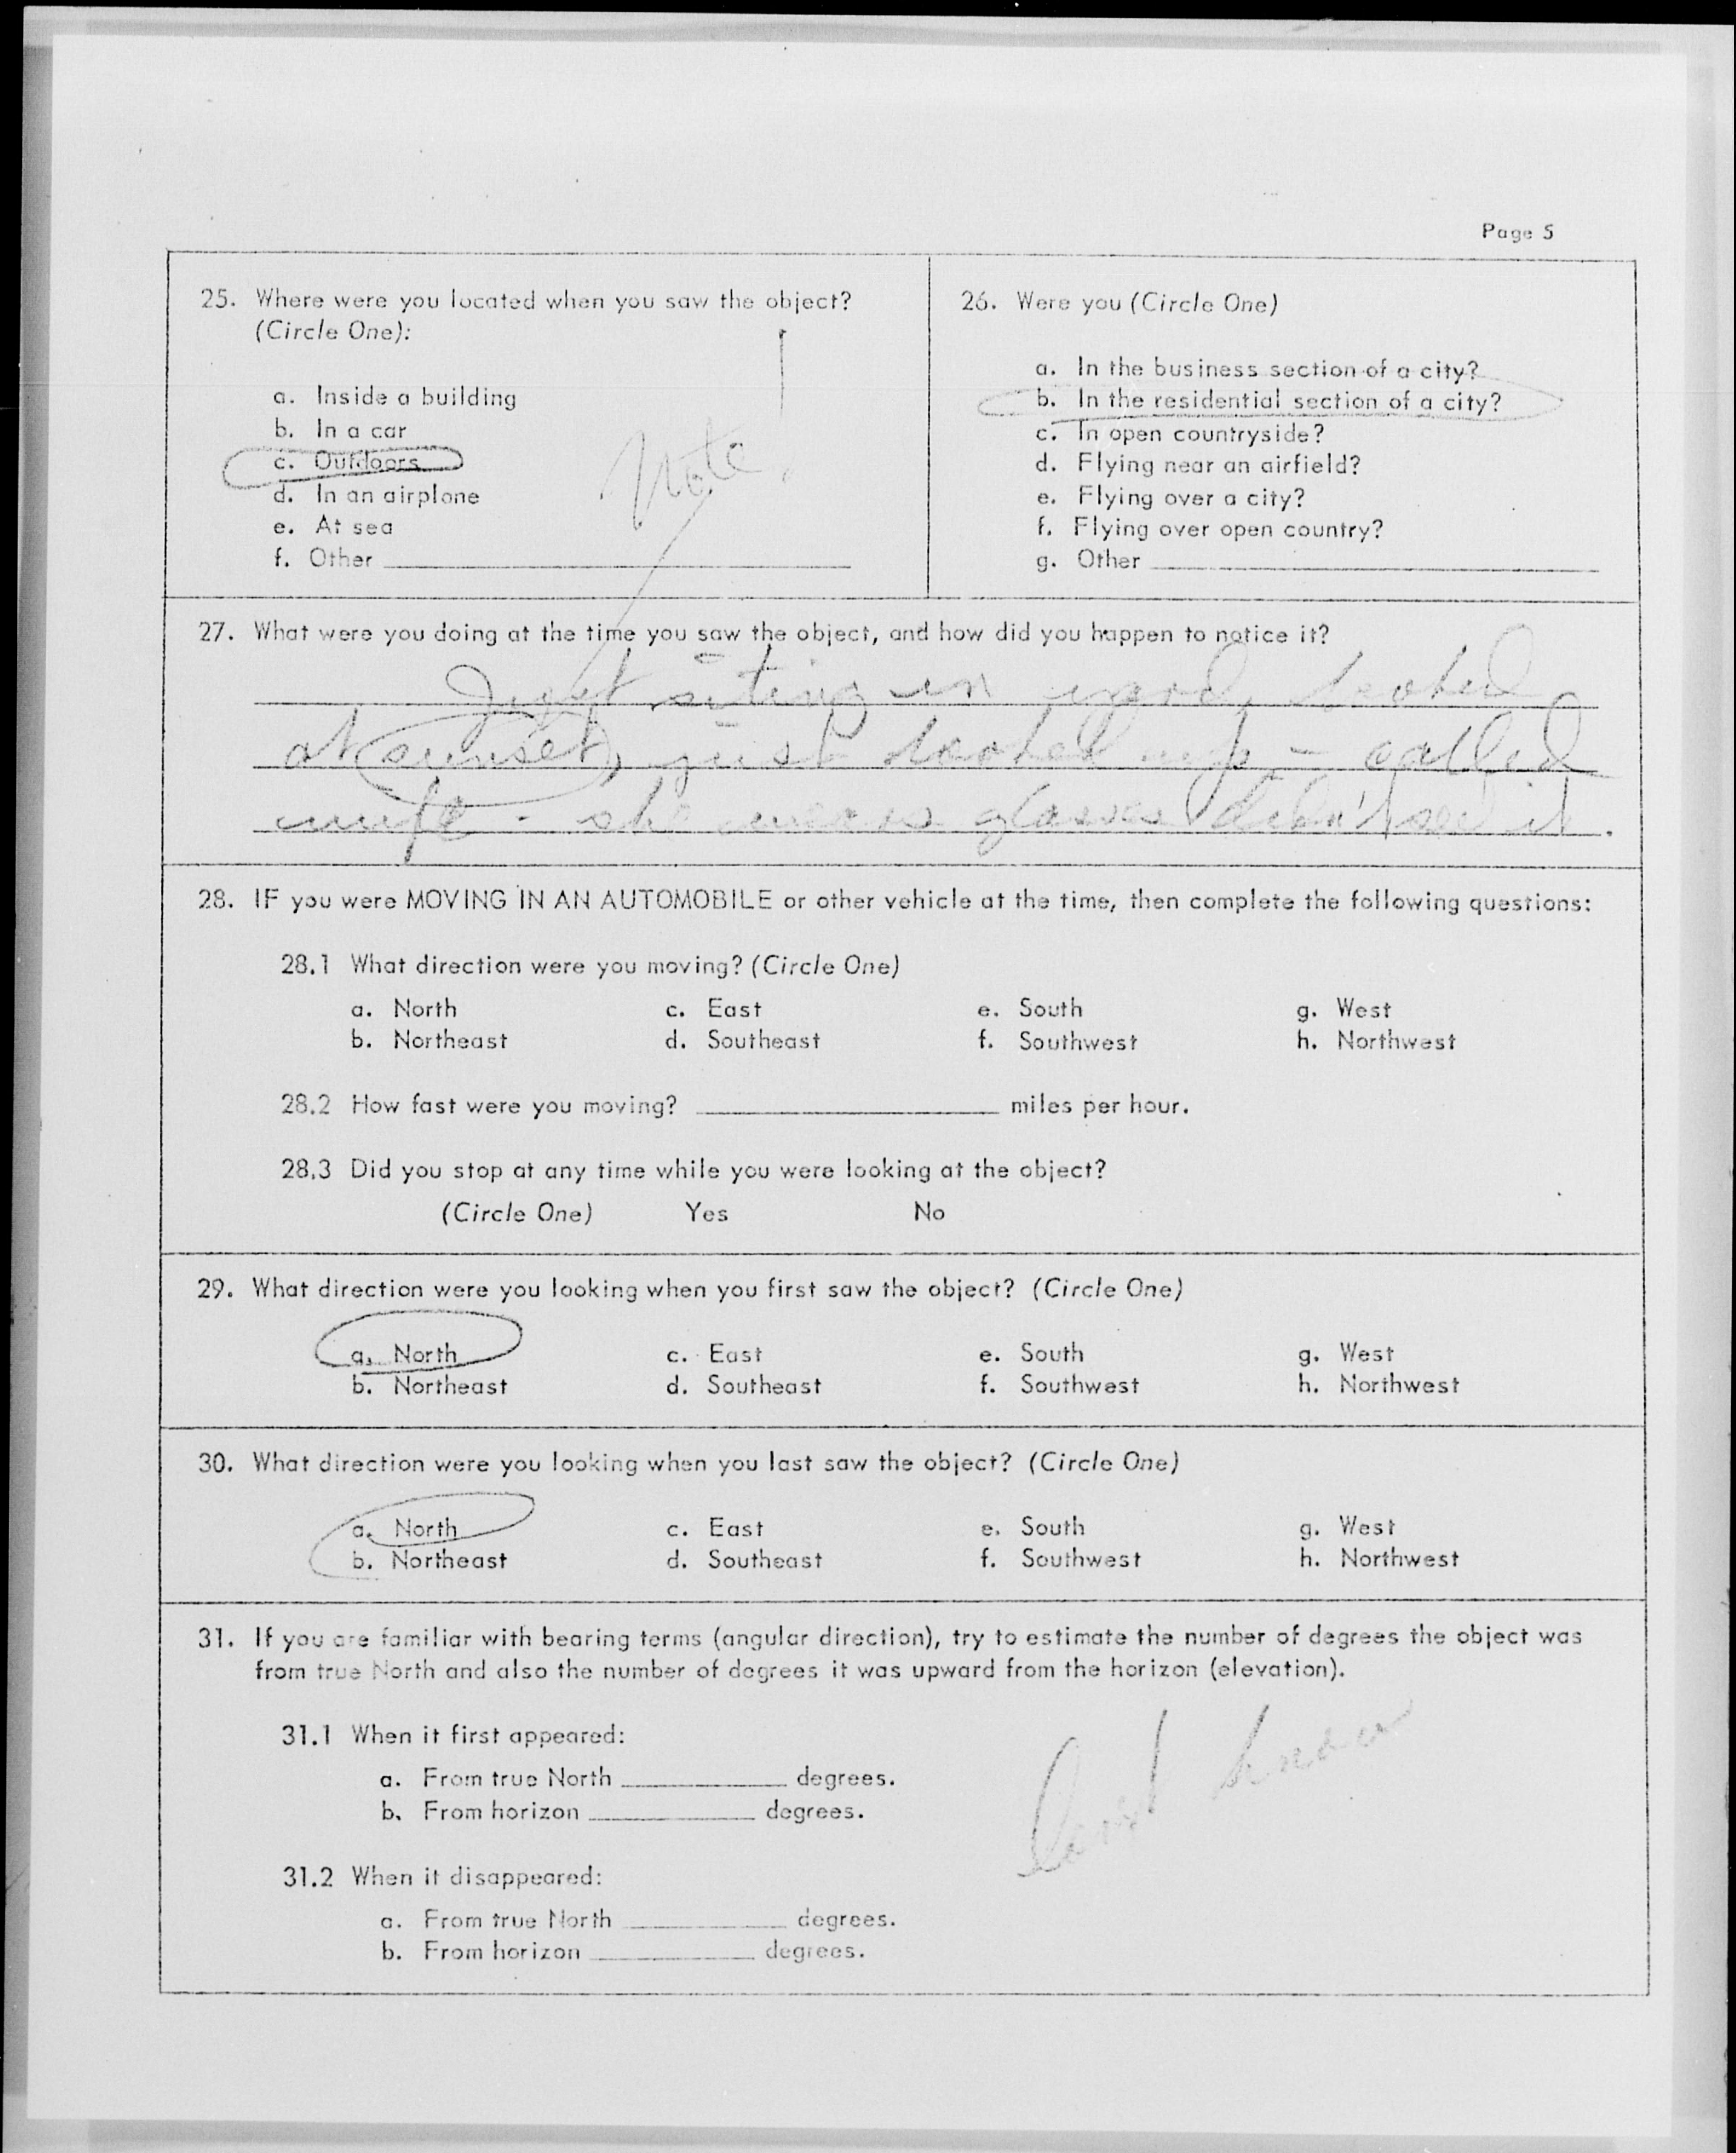 Page 5
25. Where were you located when you saw the object?
(Circle One):
a. Inside a building
b. In a car
c. Outdoors
d. In an airplane
e. At sea
f. Other
Note!
26. Were you (Circle One)
a. In the business section of a city?
b. In the residential section of a city?
c. In open countryside?
d. Flying near an airfield?
e. Flying over a city?
f. Flying over open country?
g. Other
27. What were you doing at the time you saw the object, and how did you happen to notice it?
Just siting in yard, looked
at sunset, just looked up - called
wife - she wears glasses didn't see it.
28. IF you were MOVING IN AN AUTOMOBILE or other vehicle at the time, then complete the following questions:
28.1 What direction were you moving? (Circle One)
a. North c. East e. South g. West
b. Northeast d. Southeast f. Southwest h. Northwest
28.2 How fast were you moving? miles per hour.
28.3 Did you stop at any time while you were looking at the object?
(Circle One) Yes No
29. What direction were you looking when you first saw the object? (Circle One)
a. North c. East e. South g. West
b. Northeast d. Southeast f. Southwest h. Northwest
30. What direction were you looking when you last saw the object? (Circle One)
a. North c. East e. South g. West
b. Northeast d. Southeast f. Southwest h. Northwest
31. If you are familiar with bearing terms (angular direction), try to estimate the number of degrees the object was
from true North and also the number of degrees it was upward from the horizon (elevation).
31.1 When it first appeared:
a. From true North degrees.
b. From horizon degrees.
31.2 When it disappeared:
a. From true North degrees.
b. From horizon degrees.